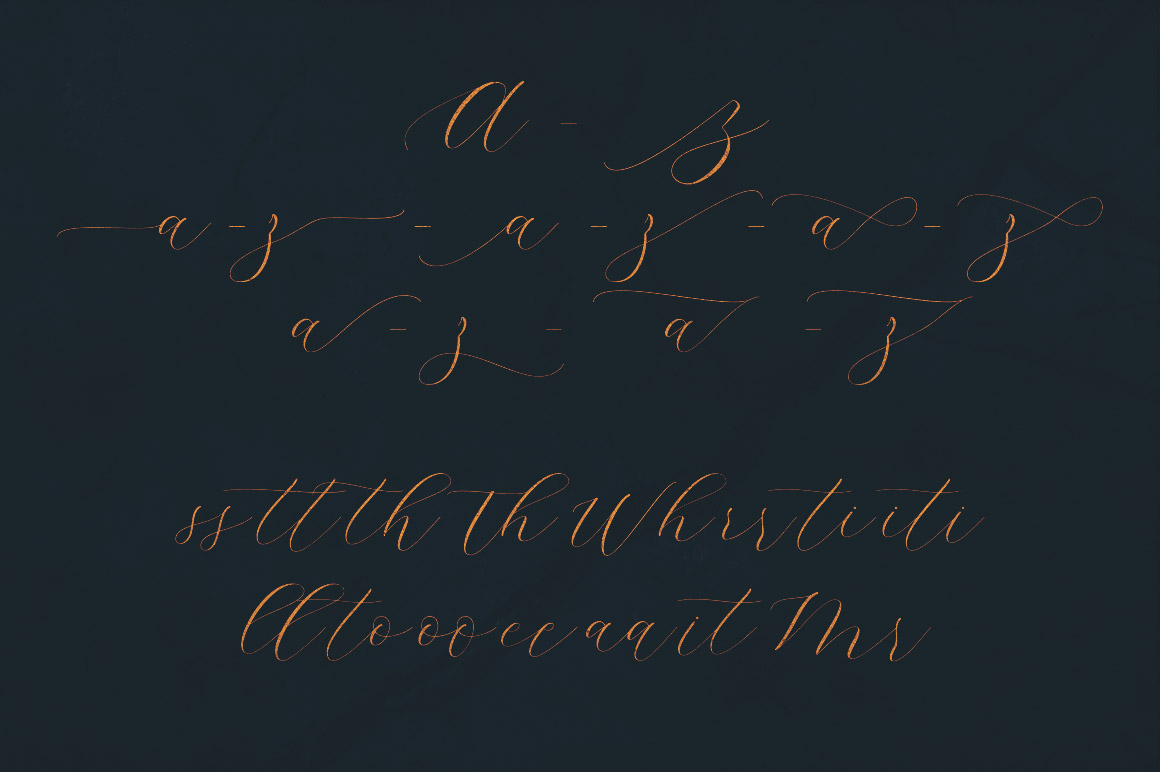 a - z
a - z - a - z - a - z
a - z - a - z
ss tt th Th Wh rs ti it ti
ll to oo ee aa it Mr